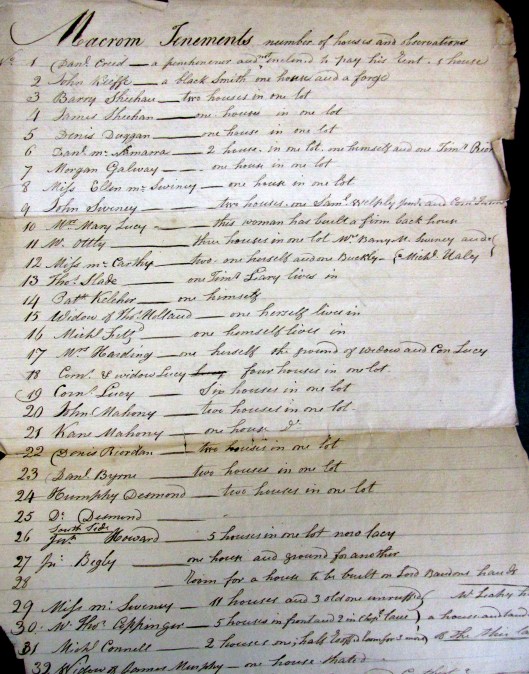 Macrom Tenements number of houses and observations
No 1 Danl Creed — a penchoneer and inclend to pay his rent. 1 house
2 John Keiffe — a black Smith one house and a forge
3 Barry Sheehan — two houses in one lot
4 James Sheehan — one house in one lot
5 Denis Duggan — one house in one lot
6 Danl mcNamarra — 2 house in one lot one himself and one Timy Rior
7 Morgan Galway — one house in one lot
8 Miss Ellen mcSweney — one house in one lot
9 John Sweney — two houses one Saml
10 Mrs Mary Lucy — this woman has built a firm back house
11 W. Ottly — three houses in one lot Wm Bany M. Sweney and
12 Miss mcCarthy — two one herself and one Buckly — Michl Haley
13 Thos Slade — one Timy Leary lives in
14 Patt Kelcher — one himself
15 Widow of Thos Holland — one herself lives in
16 Michl Fitzd — one himself lives in
17 Mrs Harding — one herself the ground of widow and Con Lucy
18 Cornl & widow Lucy four houses in one lot
19 Cornl Lucy — Six houses in one lot
20 John Mahony — two houses in one lot
21 Kane Mahony — one house Do
22 Denis Riordan — two houses in one lot
23 Danl Byrne — two houses in one lot
24 Humphy Desmond — two houses in one lot
25 Do Desmond —
South Side
26 Howard — 5 houses in one lot now lacy
27 Jno Begly — one house and ground for another
28 — Room for a house to be built on Lord Bandons hands
29 Miss mcSweney — 11 houses and 3 old one unroofed Mr Leahy
30 Mr Thos Eppenger — 5 houses in front and 2 in lane a house and
31 Michl Connell — 2 houses one half to the
32 Widow of James Murphy — one house thated